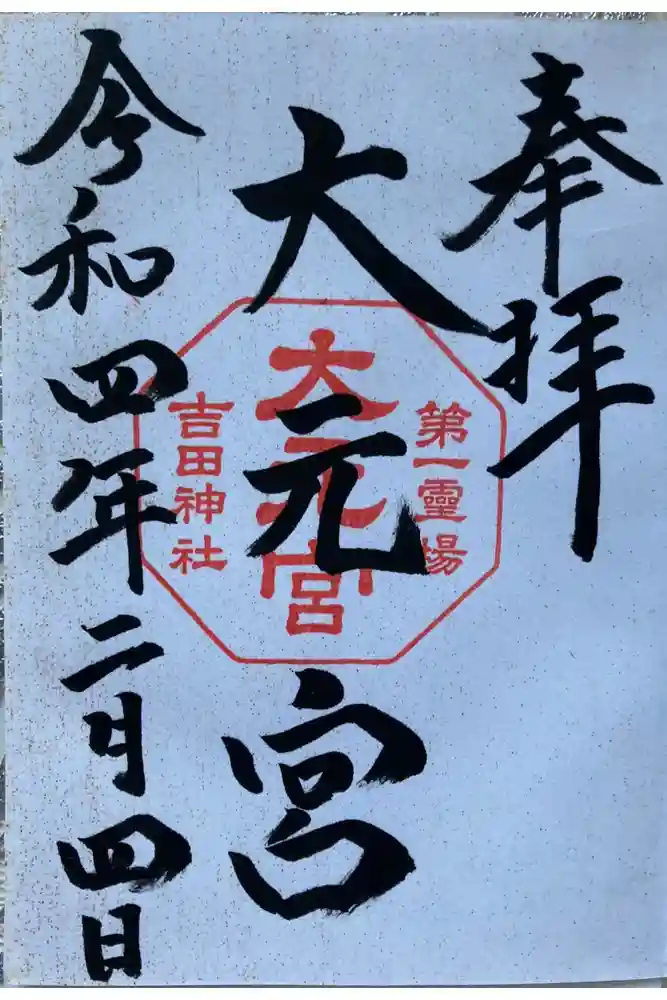 奉拝
大元宮
第一靈場
大元宮
吉田神社
令和四年二月四日